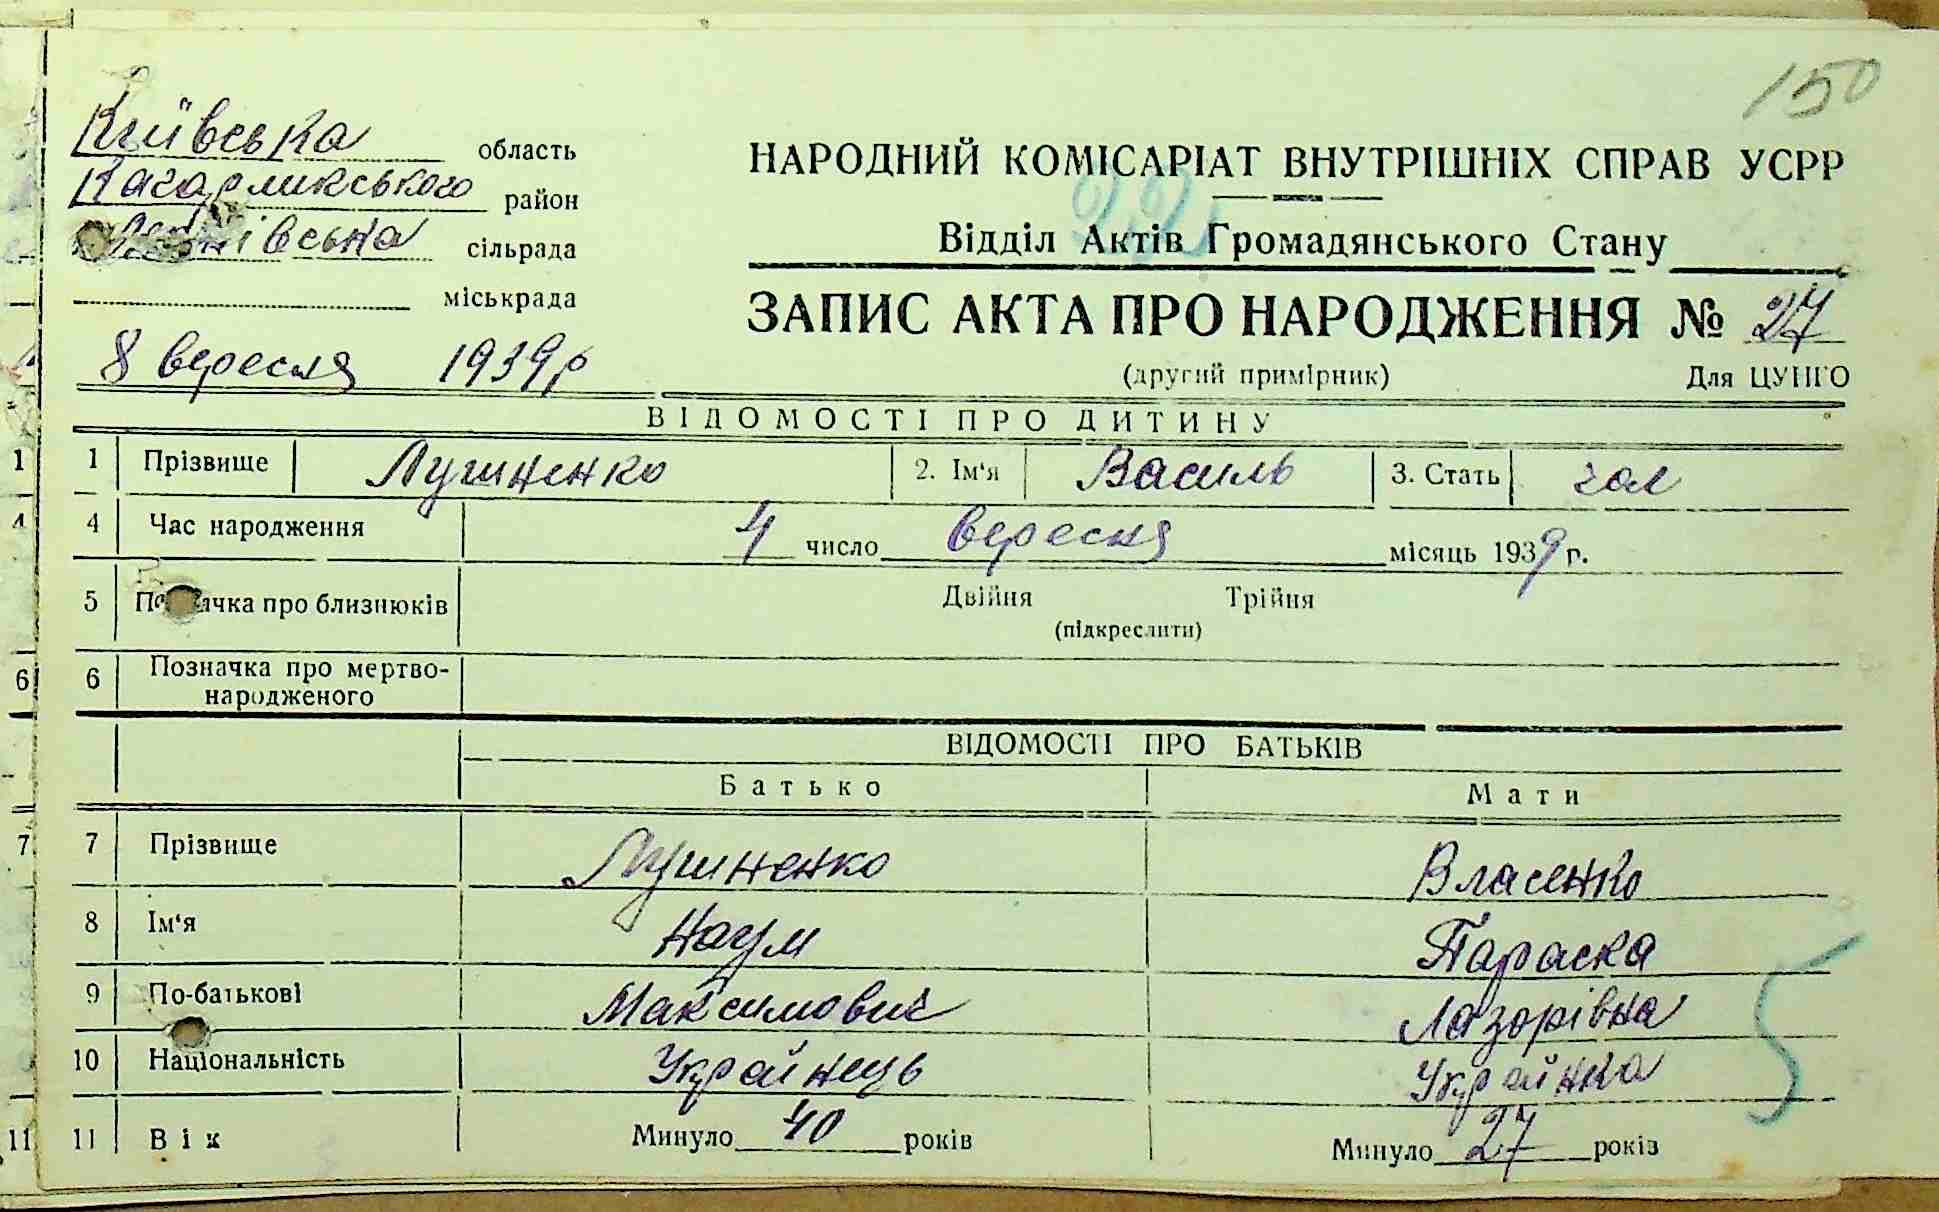 150
Київська область
Кагарликського район
сільрада
міськрада
8 вересня 1939р
НАРОДНИЙ КОМІСАРІАТ ВНУТРІШНІХ СПРАВ УСРР
22
Відділ Актів Громадянського Стану
ЗАПИС АКТА ПРО НАРОДЖЕННЯ № 27
(другий примірник) Для ЦУНГО
ВІДОМОСТІ ПРО ДИТИНУ
1 1 Прізвище Лушненко 2. Ім'я Василь 3. Стать чол
4 4 Час народження 4 число вересня місяць 1939 р.
5 По ачка про близнюків Двійня Трійня
(підкреслити)
6 6 Позначка про мертво-
народженого
ВІДОМОСТІ ПРО БАТЬКІВ
Батько Мати
7 7 Прізвище Лушненко Власенко
8 Ім'я Наум Параска
9 По-батькові Максимович Лазорівна
10 Національність Українець Українка
11 11 Вік Минуло 40 років Минуло 27 років